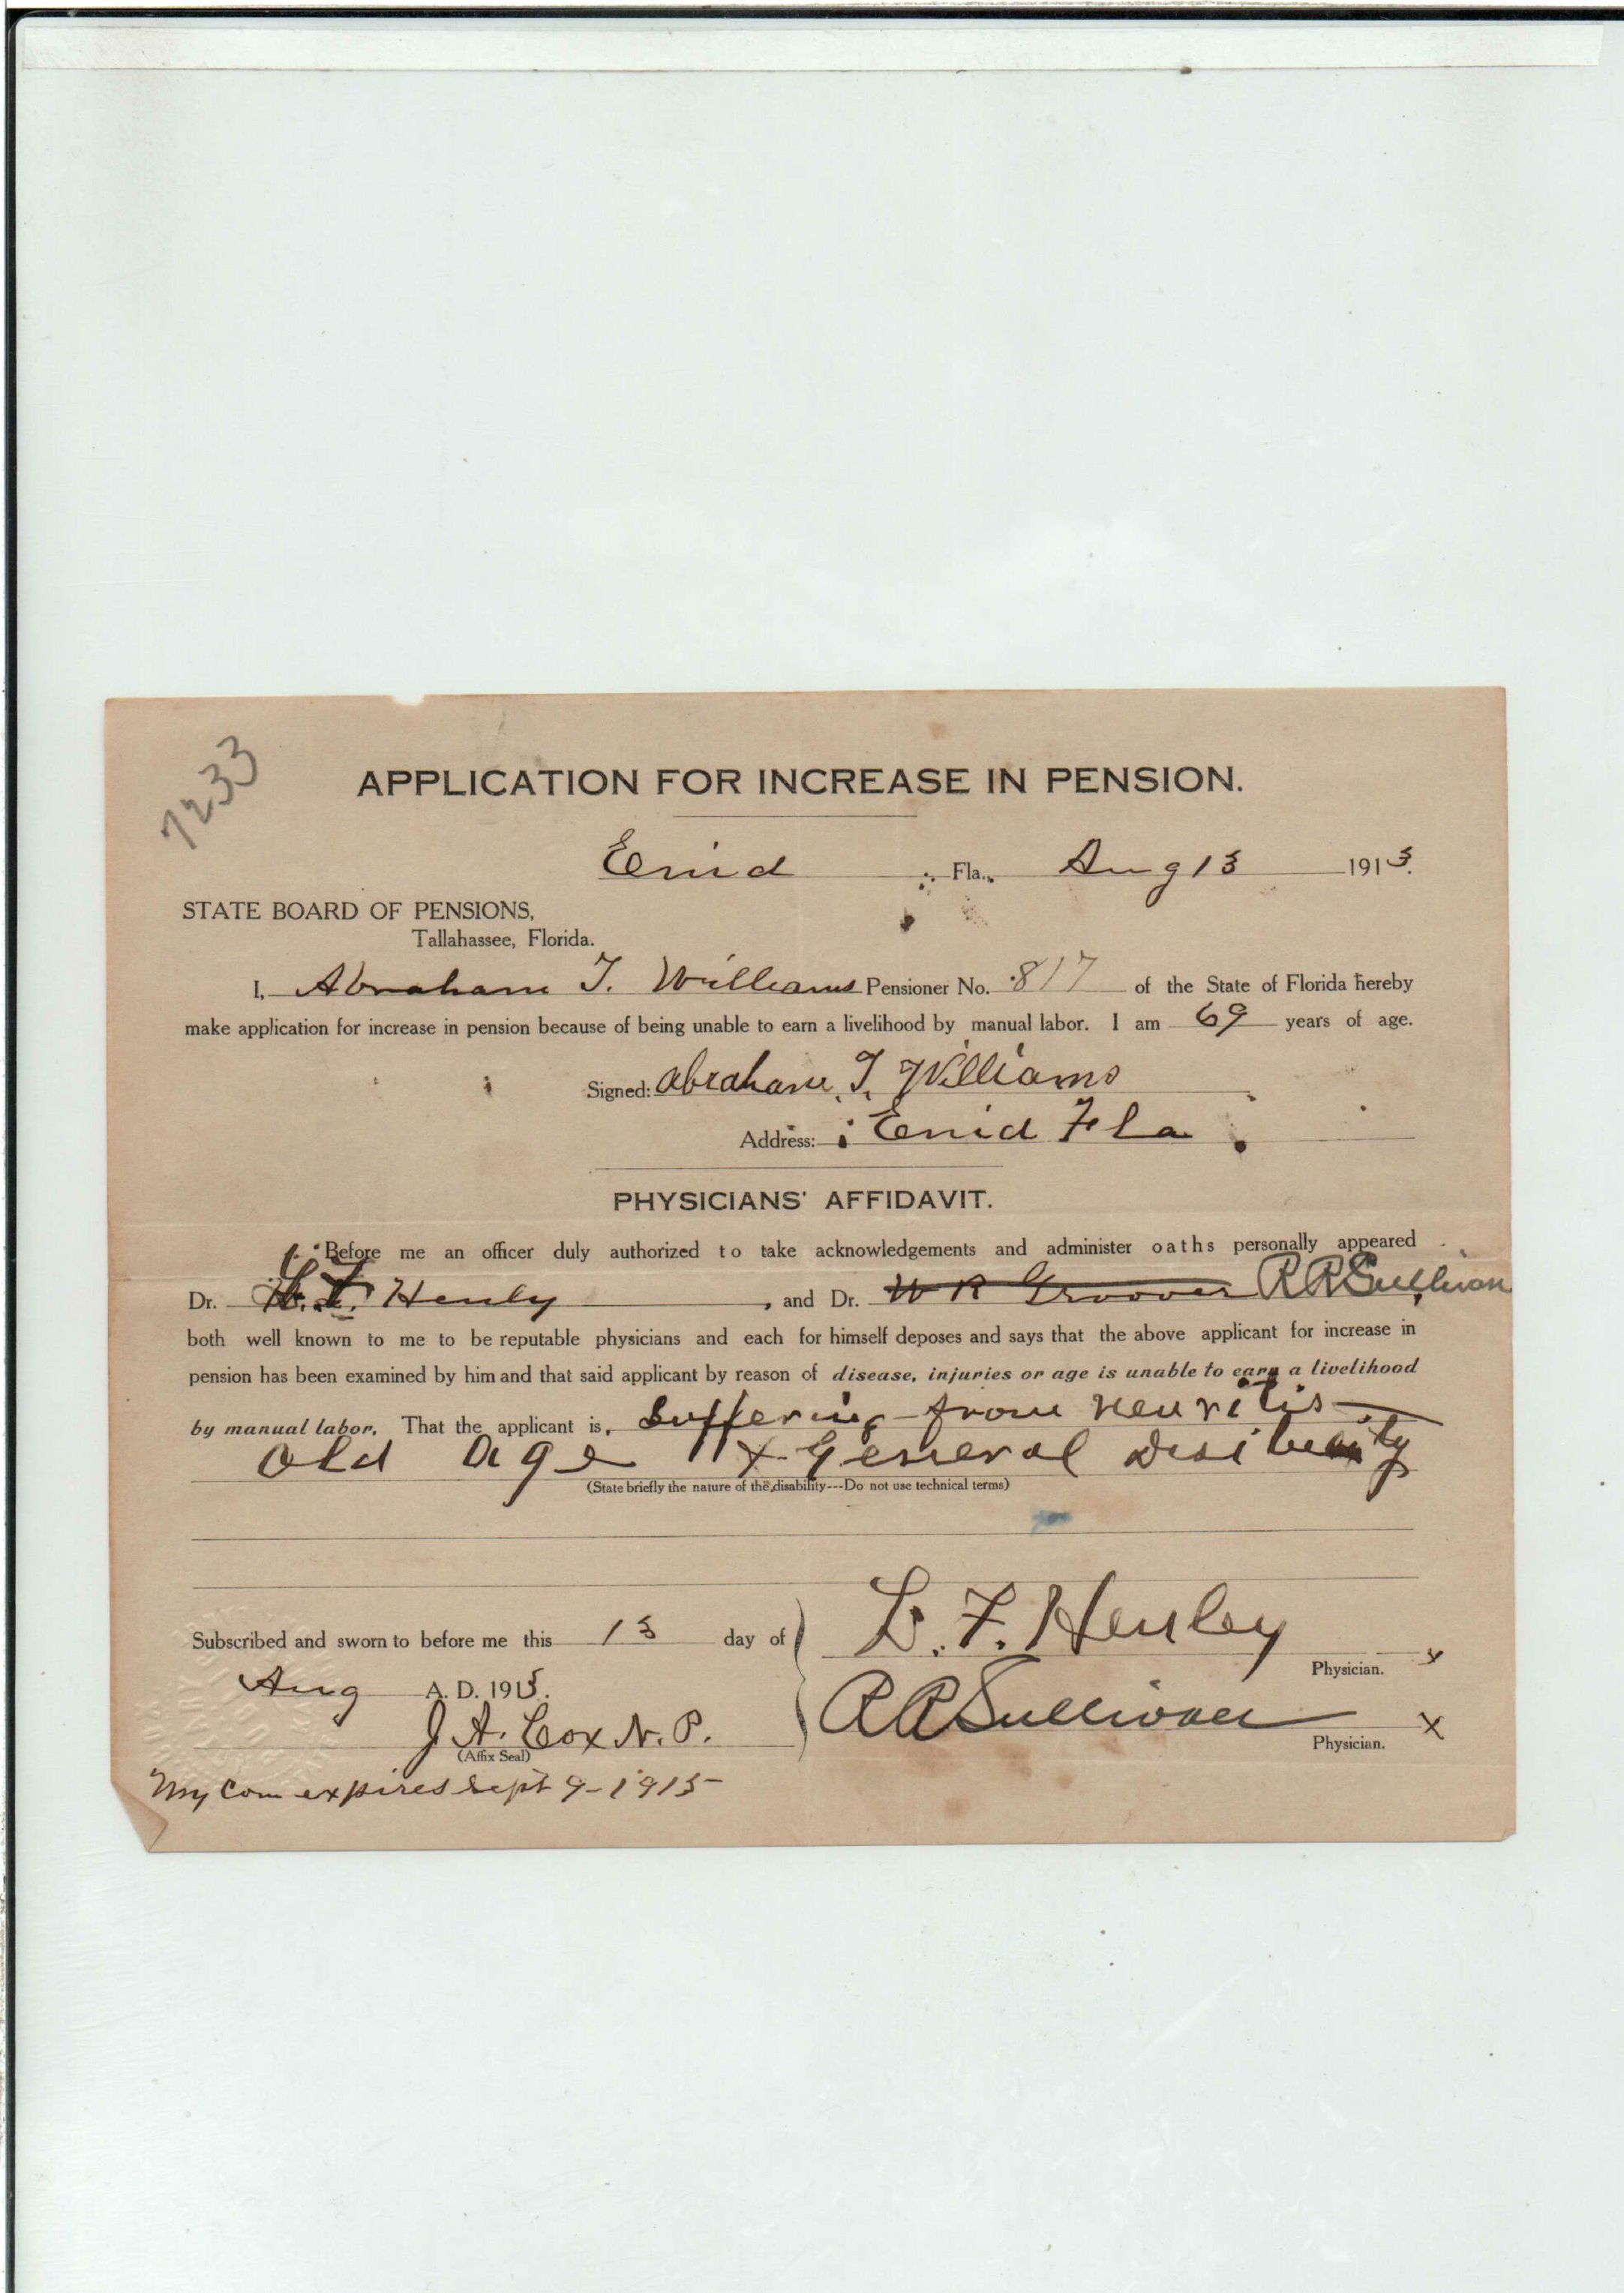 7233
APPLICATION FOR INCREASE IN PENSION.
Enid, Fla., Aug 13 1913.
STATE BOARD OF PENSIONS,
Tallahassee, Florida.
I, Abraham T. Williams Pensioner No. 817 of the State of Florida hereby
make application for increase in pension because of being unable to earn a livelihood by manual labor. I am 69 years of age.
Signed: Abraham T. Williams
Address: Enid Fla
PHYSICIANS' AFFIDAVIT.
Before me an officer duly authorized to take acknowledgements and administer oaths personally appeared
Dr. Henly, and Dr. W R Groover R R Sullivan
both well known to me to be reputable physicians and each for himself deposes and says that the above applicant for increase in
pension has been examined by him and that said applicant by reason of disease, injuries or age is unable to earn a livelihood
by manual labor. That the applicant is, Suffering from neuritis
old age & General
(State briefly the nature of the disability---Do not use technical terms)
Subscribed and sworn to before me this 13 day of
L. F. Henley
Physician. x
Aug A. D. 1913.
R R Sullivan
Physician. x
J. A. Cox N. P.
(Affix Seal)
My Com expires Sept 9-1915